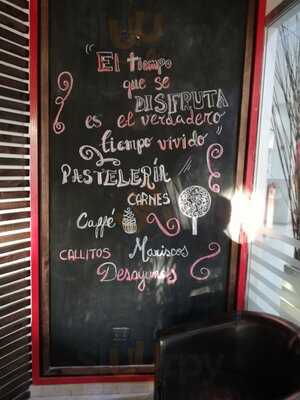 "El tiempo
que se
DISFRUTA
es el verdadero
tiempo vivido"
PASTELERÍA
CARNES
Caffé
Mariscos
CALLITOS
Desayunos